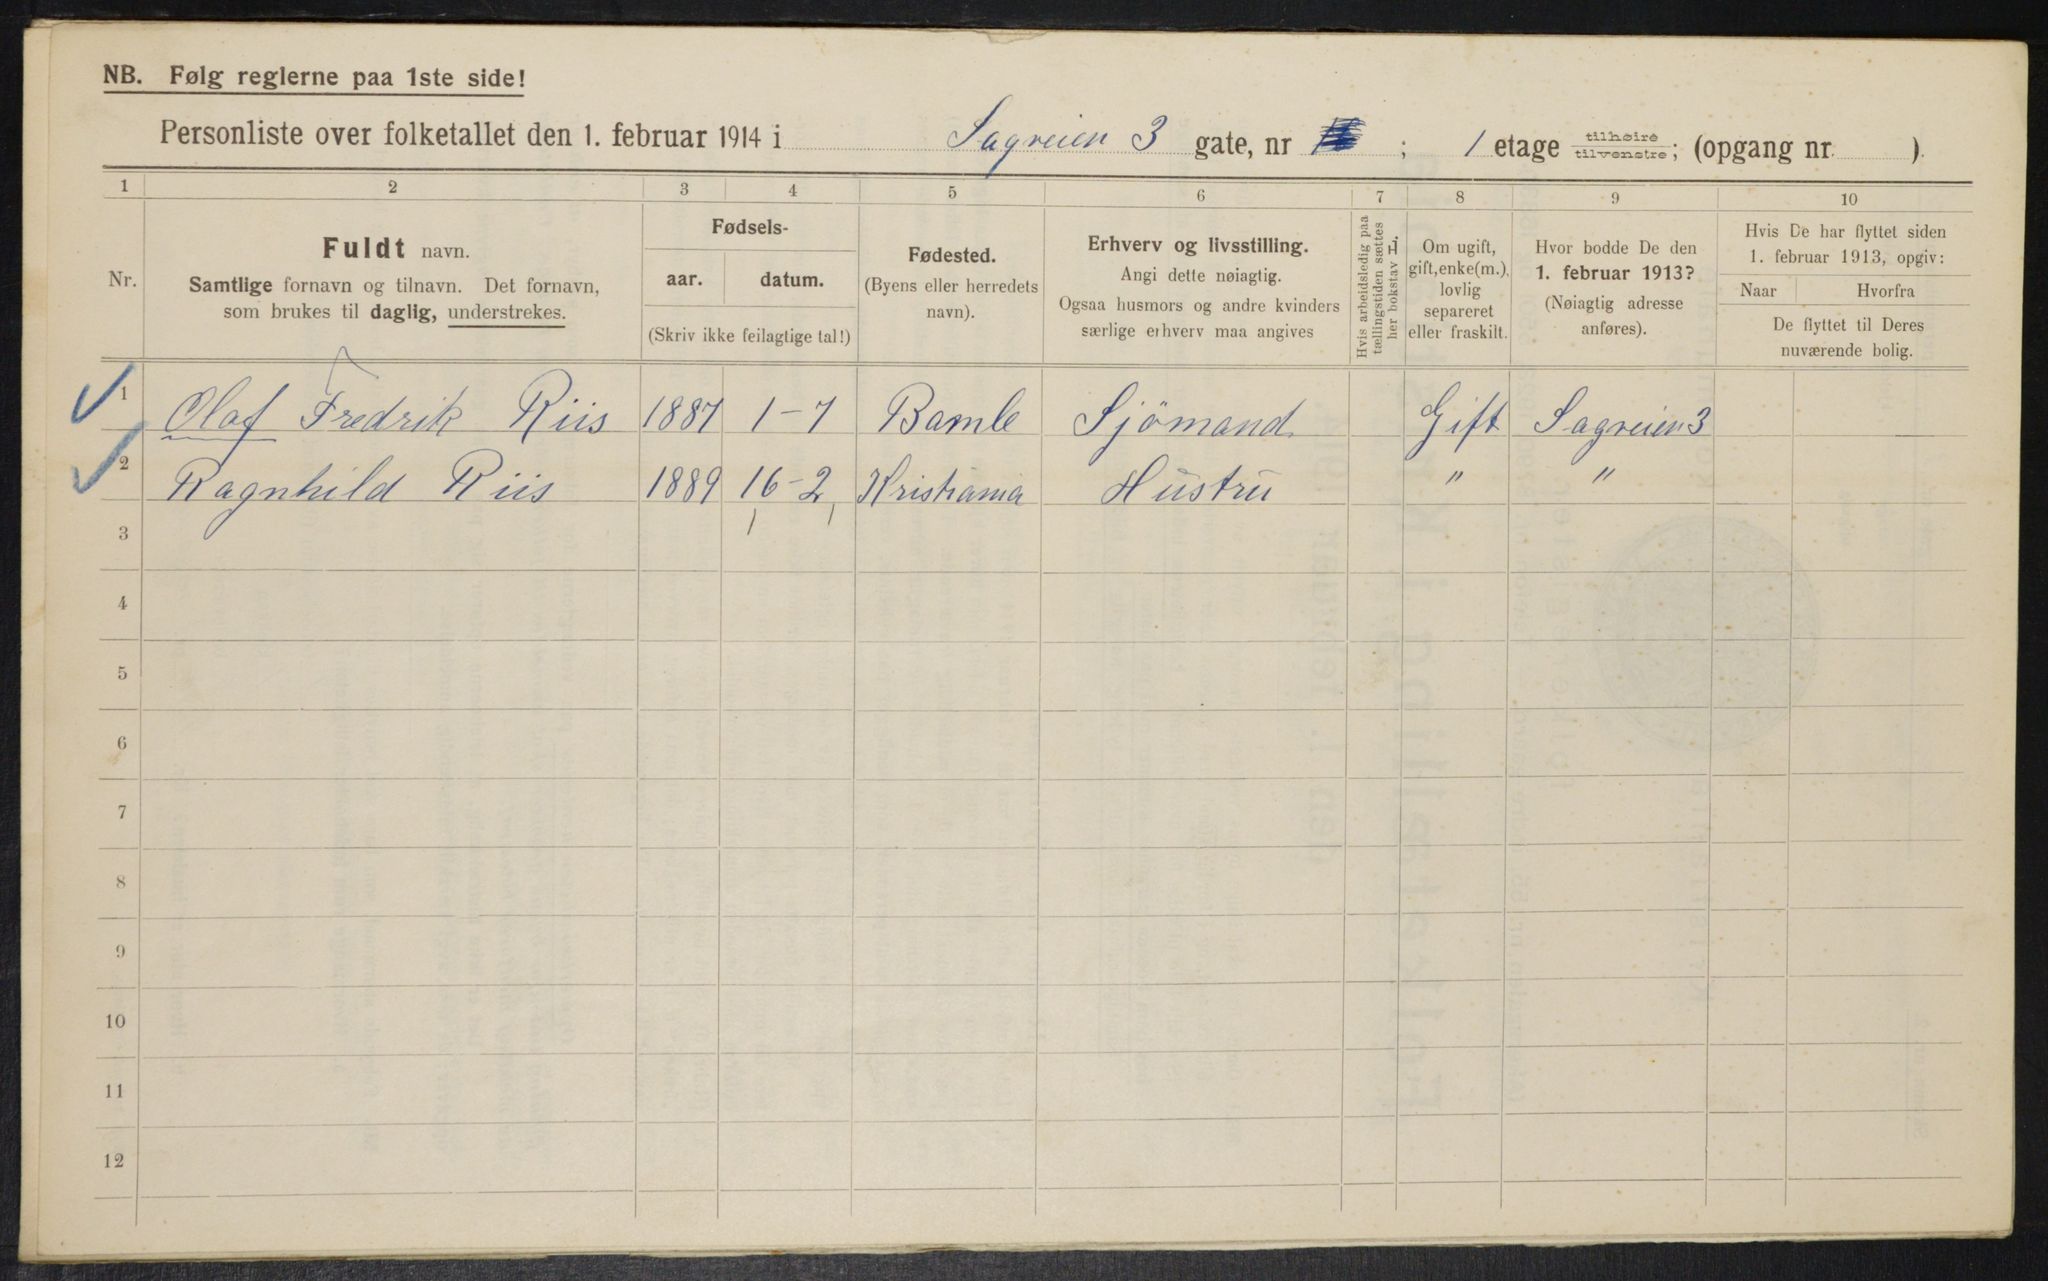 NB. Følg reglerne paa 1ste side!
Personliste over folketallet den 1. februar 1914 i Sagveien 3 gate, nr ; 1 etage tilhøire/tilvenstre; (opgang nr. ).
1 2 3 4 5 6 7 8 9 10
Nr.
Fuldt navn.
Samtlige fornavn og tilnavn. Det fornavn,
som brukes til daglig, understrekes.
Fødsels-
aar. datum.
(Skriv ikke feilagtige tal!)
Fødested.
(Byens eller herredets
navn).
Erhverv og livsstilling.
Angi dette nøiagtig.
Ogsaa husmors og andre kvinders
særlige erhverv maa angives
Hvis arbeidsledig paa
tællingstiden sættes
her bokstav L.
Om ugift,
gift, enke(m.),
lovlig
separeret
eller fraskilt.
Hvor bodde De den
1. februar 1913?
(Nøiagtig adresse
anføres).
Hvis De har flyttet siden
1. februar 1913, opgiv:
Naar Hvorfra
De flyttet til Deres
nuværende bolig.
1 Olaf Fredrik Riis 1887 1-7 Bamle Sjömand Gift Sagveien 3
2 Ragnhild Riis 1889 16-2 Kristiania Hustru " "
3
4
5
6
7
8
9
10
11
12